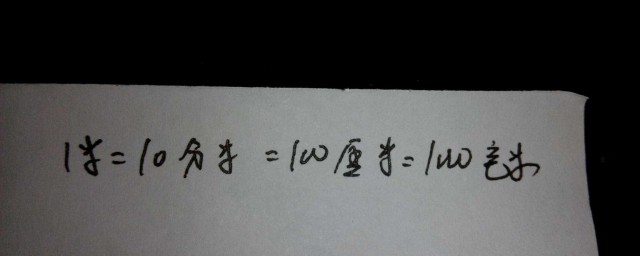 1米=10分米=100厘米=1000毫米